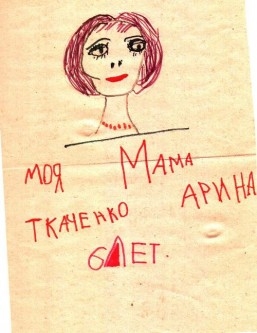 МОЯ МАМА
ТКАЧЕНКО АРИНА
6 ЛЕТ.